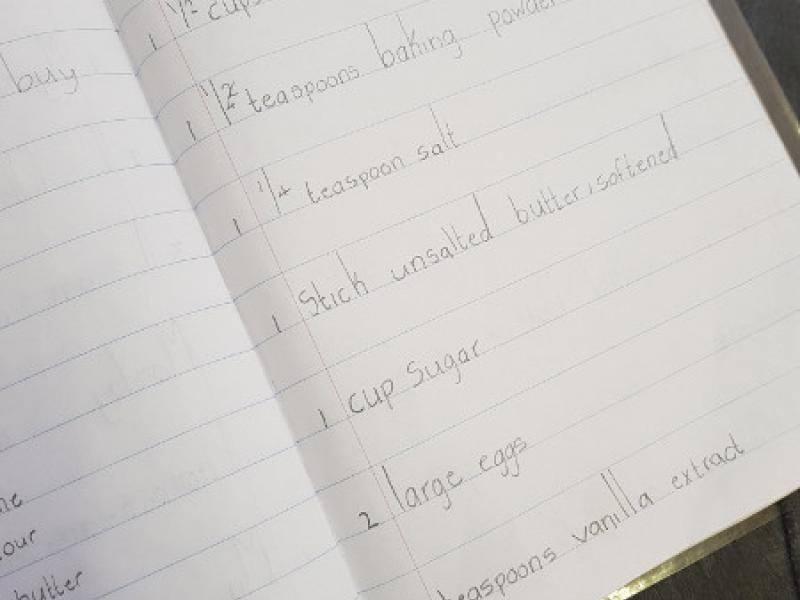 buy
me
our
butter
1 1/2 cups
1 1/2 teaspoons baking powder
1 1/4 teaspoon salt
1 Stick unsalted butter, softened
1 cup Sugar
2 large eggs
teaspoons vanilla extract